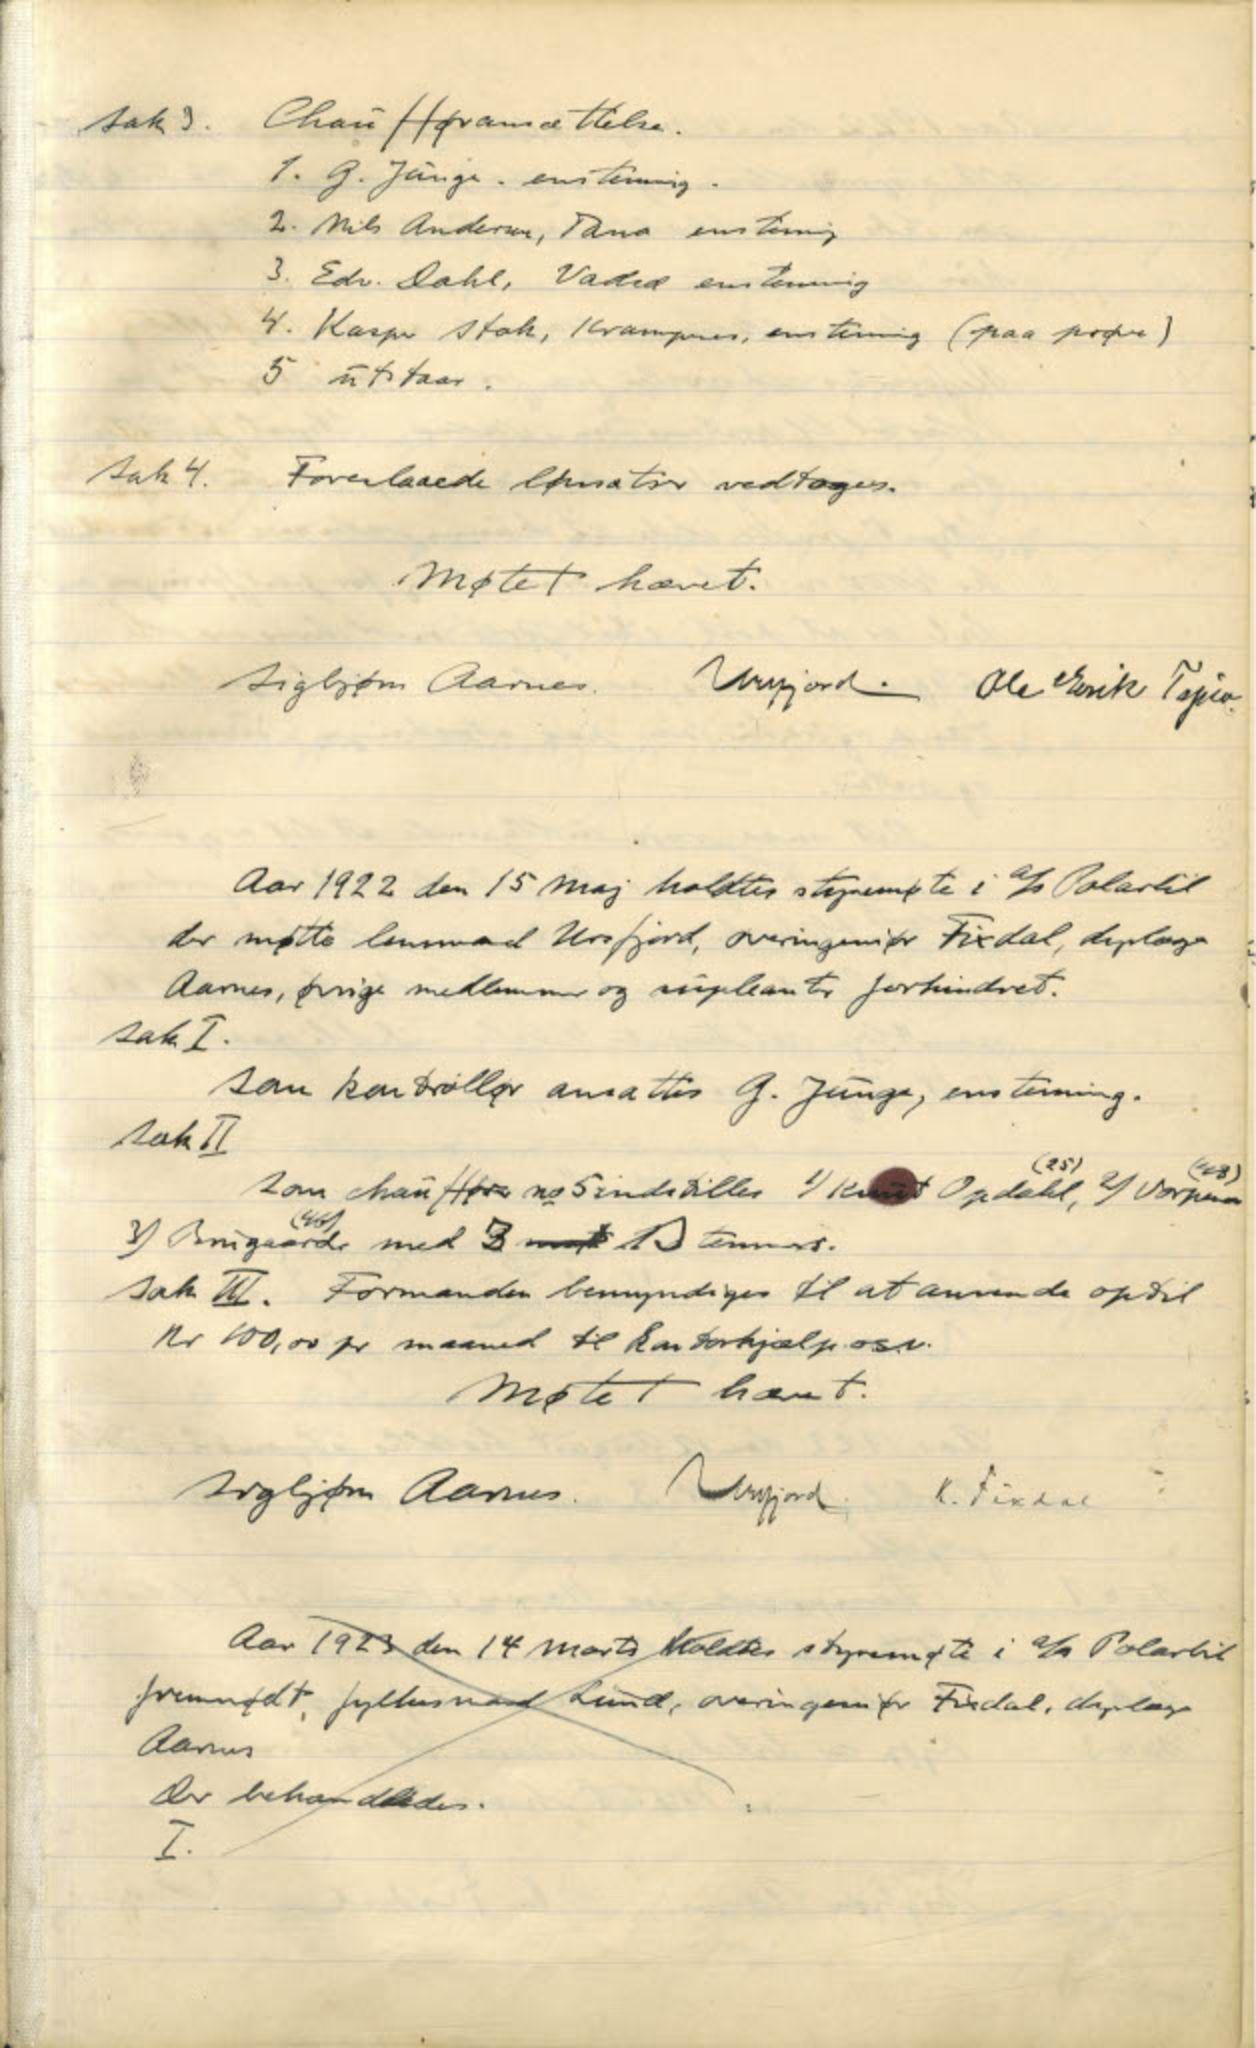 Sak 3. Chaufføransættelse.
1. G. Junge. enstemig.
2. Nils Andersen, Tana enstemig
3. Edv. Dahl, Vadsø enstemmig
4. Kasper Stok, Krampenes, enstemig (paa prøve)
5 utstaar.
Sak 4. Foreslaaede lønsatser vedtoges.
Møtet hævet.
Sigbjørn Aarnes. Ursfjord. Ole Erik Tapio.
Aar 1922 den 15 Maj holdtes styremøte i a/s Polarbil
der møtte lensmand Ursfjord, overingeniør Fixdal, dyrlæge
Aarnes, øvrige medlemmer og supleanter forhindret.
Sak I.
Som kontrollør ansattes G. Junge, enstemmig.
Sak II
Som chauffør no 5 indstilles 1/ Knut Opdahl, (25) 2/
3) med 3 stemmer.
Sak III. Formanden bemyndiges til at anvende optil
Kr 100,00 pr maaned til kontorhjælp osv.
Møtet hævet.
Sigbjørn Aarnes. Ursfjord. K. Fixdal
Aar 1923 den 14 Marts holdtes styremøte i a/s Polarbil
fremmødt, fylkesmand Lund, overingeniør Fixdal, dyrlæge
Aarnes
Der behandledes.
I.